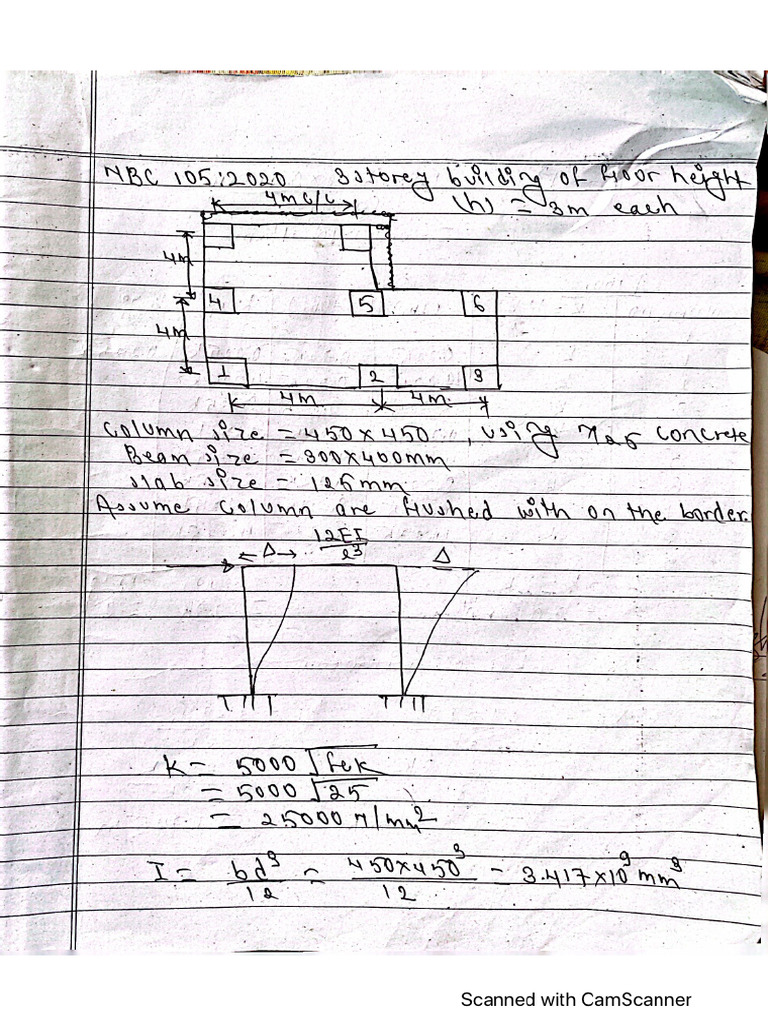 NBC 105:2020 3storey building of floor height
4m c/c (h) = 3m each
4m
4 5 6
4m
1 2 3
4m 4m
Column size = 450×450, using M25 concrete
Beam size = 300×400mm
slab size = 125mm
Assume column are flushed with on the border.
12EI
Δ l3 Δ
K = 5000 √fck
= 5000 √25
= 25000 N/mm2
I = bd3/12 = 450×4503/12 = 3.417×109 mm3
Scanned with CamScanner